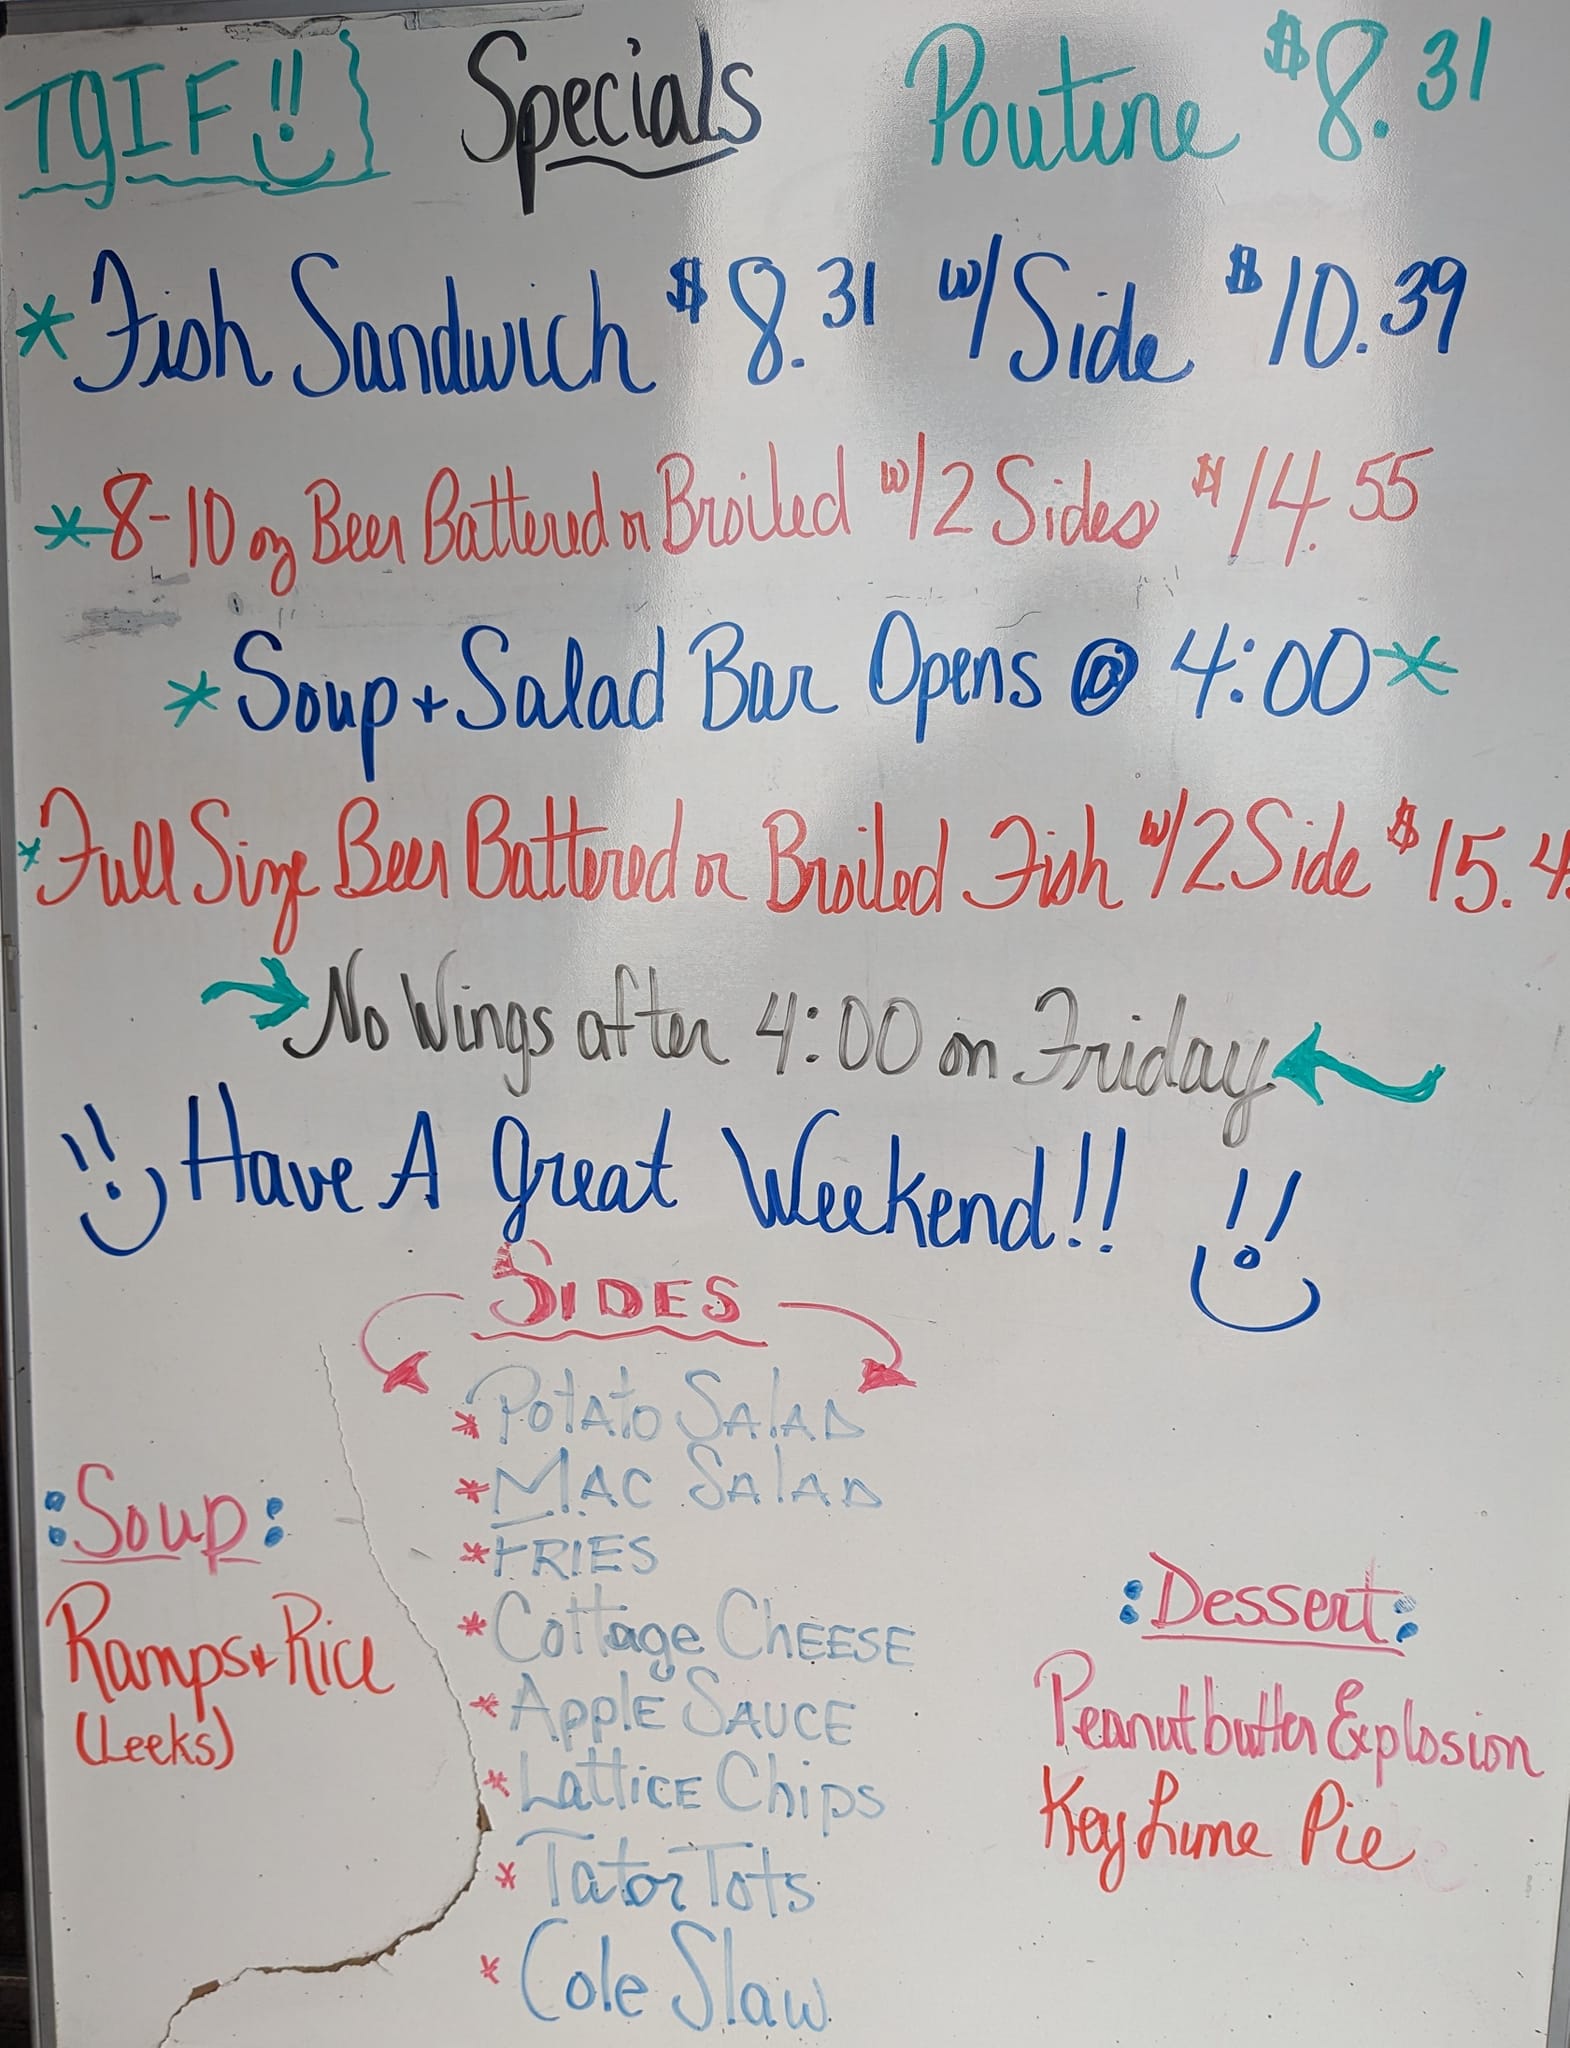 TGIF!! Specials Poutine $8.31
* Fish Sandwich $8.31 w/Side $10.39
* 8-10 oz Beer Battered or Broiled w/2 Sides $14.55
* Soup + Salad Bar Opens @ 4:00 *
* Full Size Beer Battered or Broiled Fish w/2 Side $15.4
→ No Wings after 4:00 on Friday ←
Have A Great Weekend!!
SIDES
* Potato Salad
* Mac Salad
* FRIES
* Cottage CHEESE
* Apple SAUCE
* Lattice Chips
* Tator Tots
* Cole Slaw
:Soup:
Ramps + Rice
(Leeks)
:Dessert:
Peanutbutter Explosion
Key Lime Pie